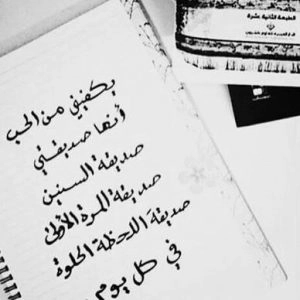 الطبعة الثانية عشرة
يكفيني من الحب
أنها صديقتي
صديقة السنين
صديقة المرة الأولى
صديقة اللحظة الحلوة
في كل يوم